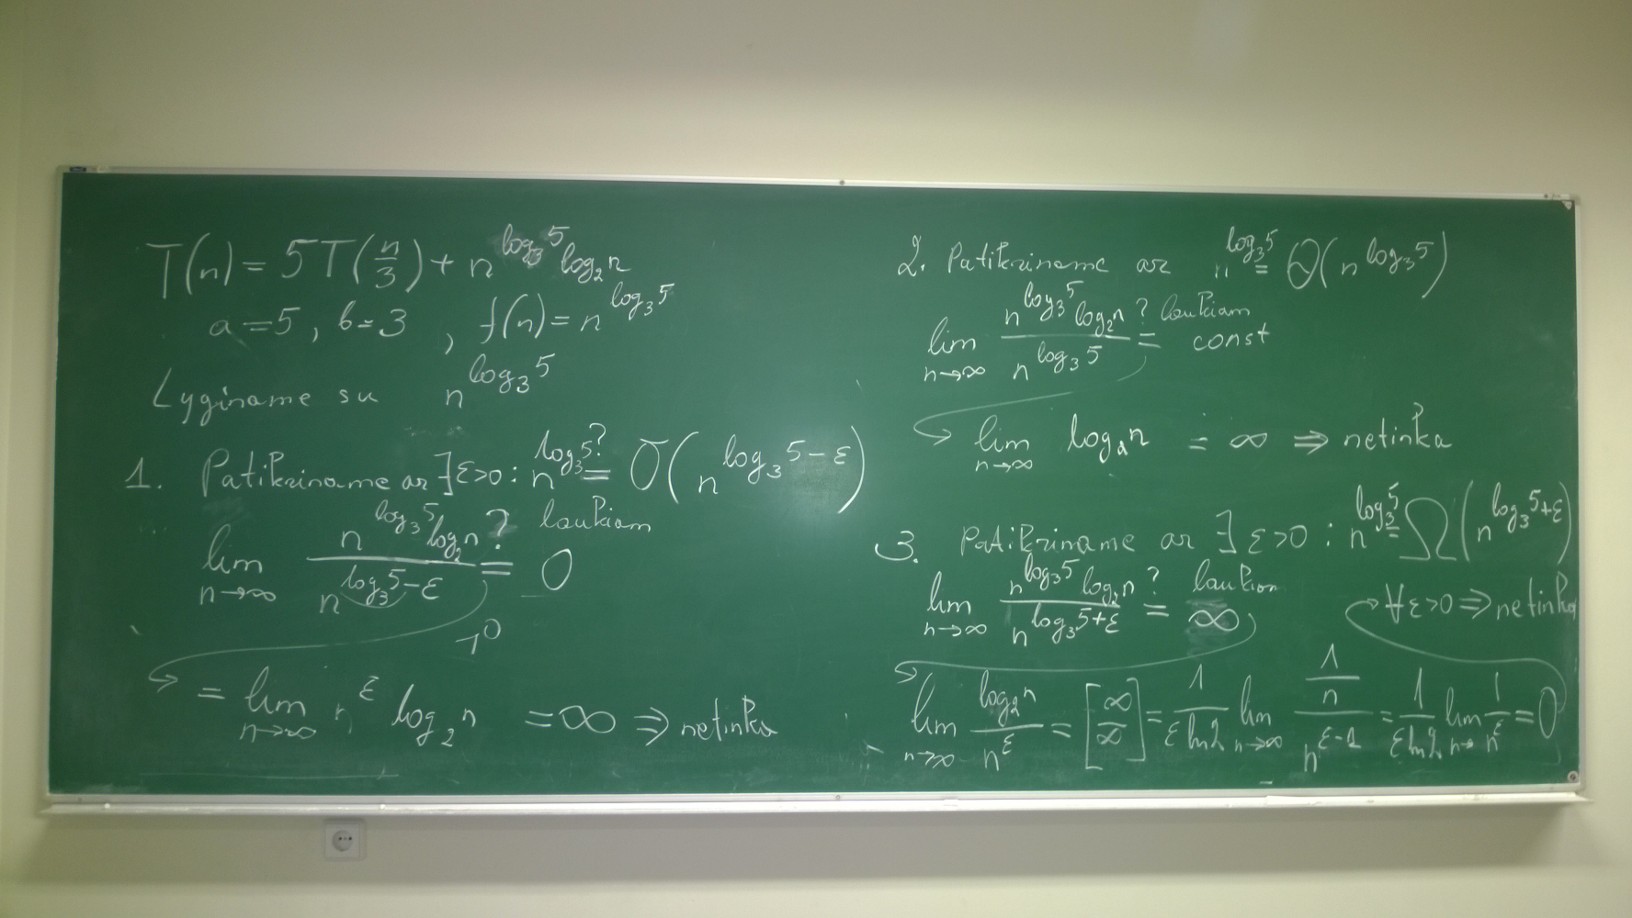 T(n) = 5T(n/3) + n^{log_3 5} log_2 n
a = 5, b = 3, f(n) = n^{log_3 5}
Lyginame su n^{log_3 5}
1. Patikriname ar ∃ε>0 : n^{log_3 5} ?= O(n^{log_3 5-ε})
lim_{n→∞} (n^{log_3 5} log_2 n)/(n^{log_3 5-ε}) ?= 0 laukiam
= lim_{n→∞} n^ε log_2 n = ∞ ⇒ netinka
2. Patikriname ar n^{log_3 5} = Θ(n^{log_3 5})
lim_{n→∞} (n^{log_3 5} log_2 n)/(n^{log_3 5}) ?= const laukiam
lim_{n→∞} log_2 n = ∞ ⇒ netinka
3. Patikriname ar ∃ ε>0 : n^{log_3 5} = Ω(n^{log_3 5+ε})
lim_{n→∞} (n^{log_3 5} log_2 n)/(n^{log_3 5+ε}) ?= ∞ laukiam
∀ε>0 ⇒ netinka
lim_{n→∞} (log_2 n)/(n^ε) = [∞/∞] = 1/(ε ln2) lim_{n→∞} (1/n)/(n^{ε-1}) = 1/(ε ln2) lim_{n→} 1/(n^ε) = 0